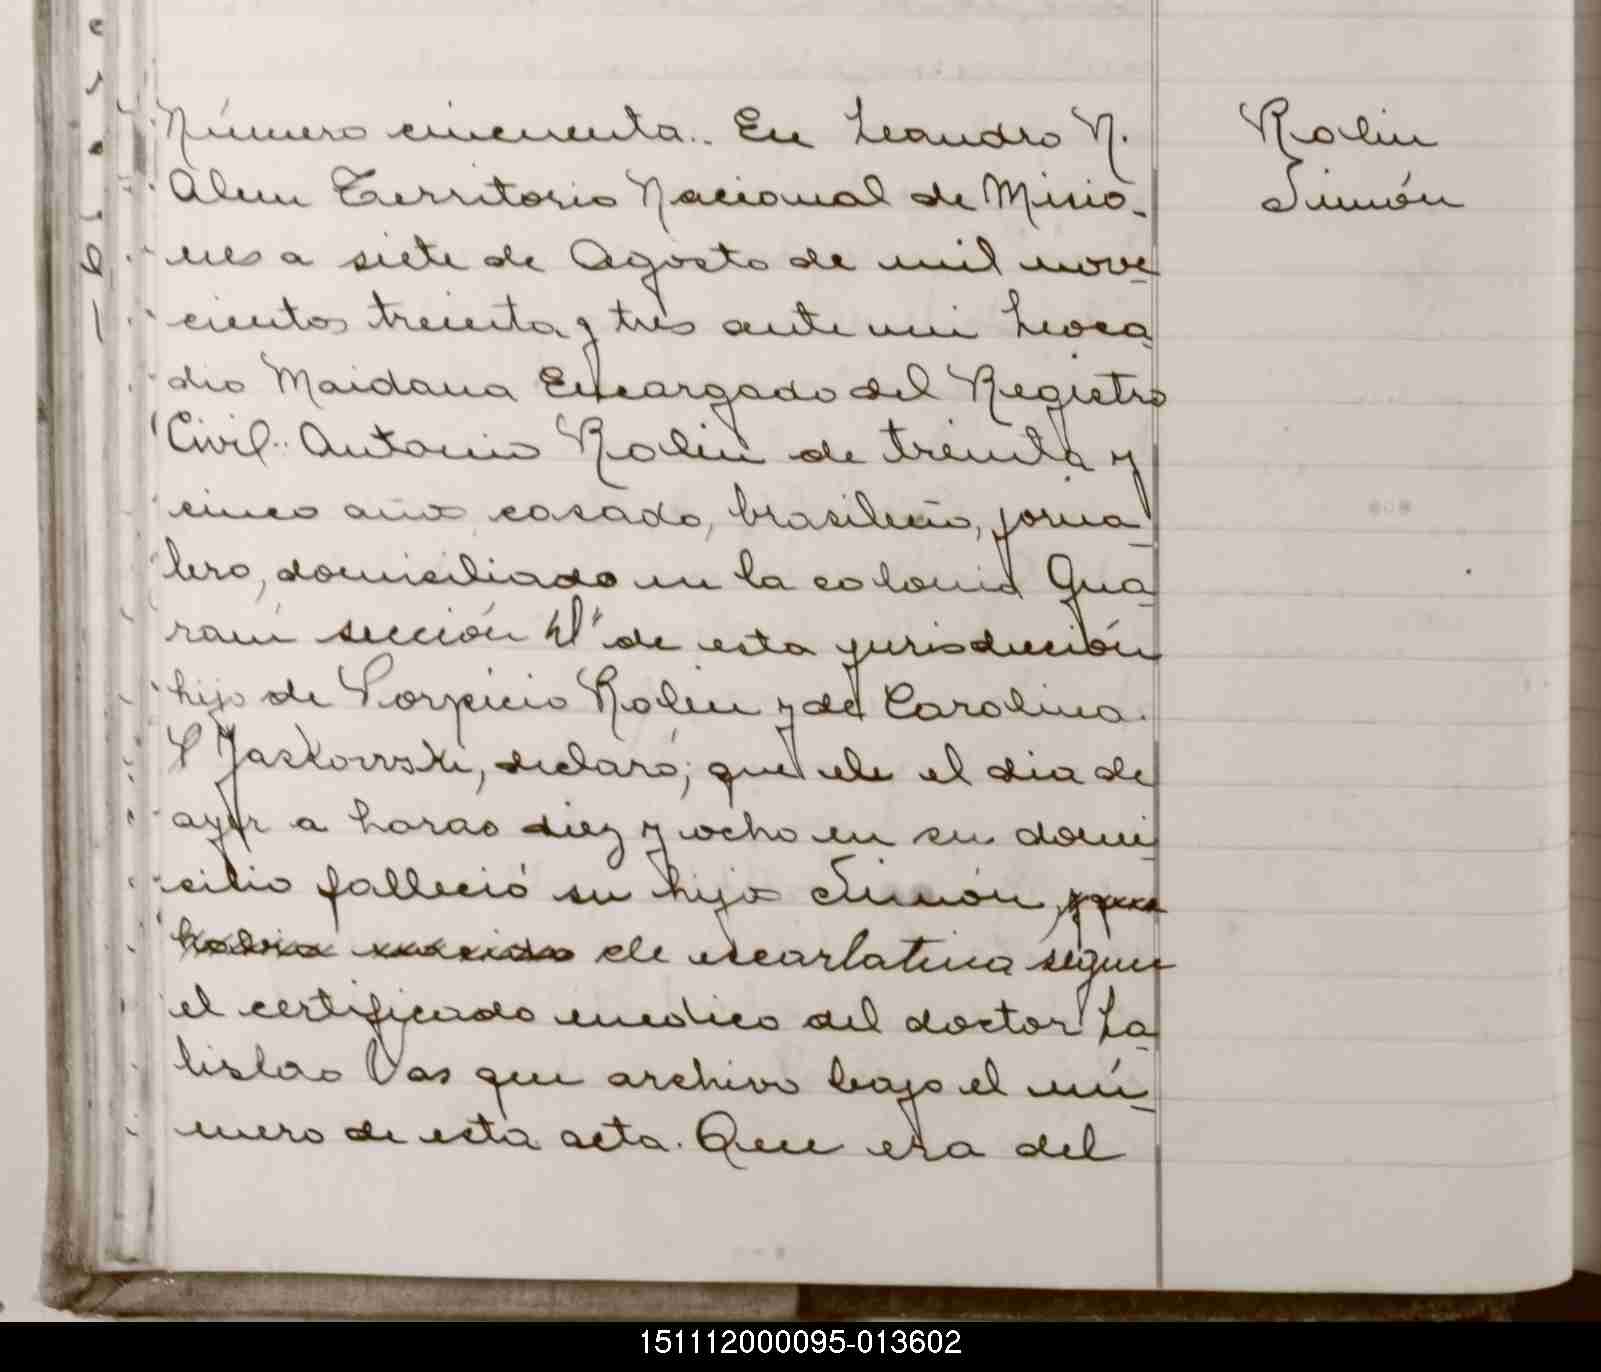 Número cincuenta.. En Leandro N.
Alem Territorio Nacional de Misio-
nes a siete de Agosto de mil nove-
cientos treinta y tres ante mi Leoca-
dio Maidana Encargado del Registro
Civil.. Antonio Rolin de treinta y
cinco años casado, brasileño, jorna-
lero, domiciliado en la colonia Gua-
raní sección de esta jurisdicción
hijo de Rolin y de Carolina
Jaskowski, declaró; que el dia de
ayer a horas diez y ocho en su domi-
cilio falleció su hijo Simón, y que
habia nacido de escarlatina según
el certificado medico del doctor La-
dislao Vas que archivo bajo el nú-
mero de esta acta. Que era del
Rolin
Simón
151112000095-013602